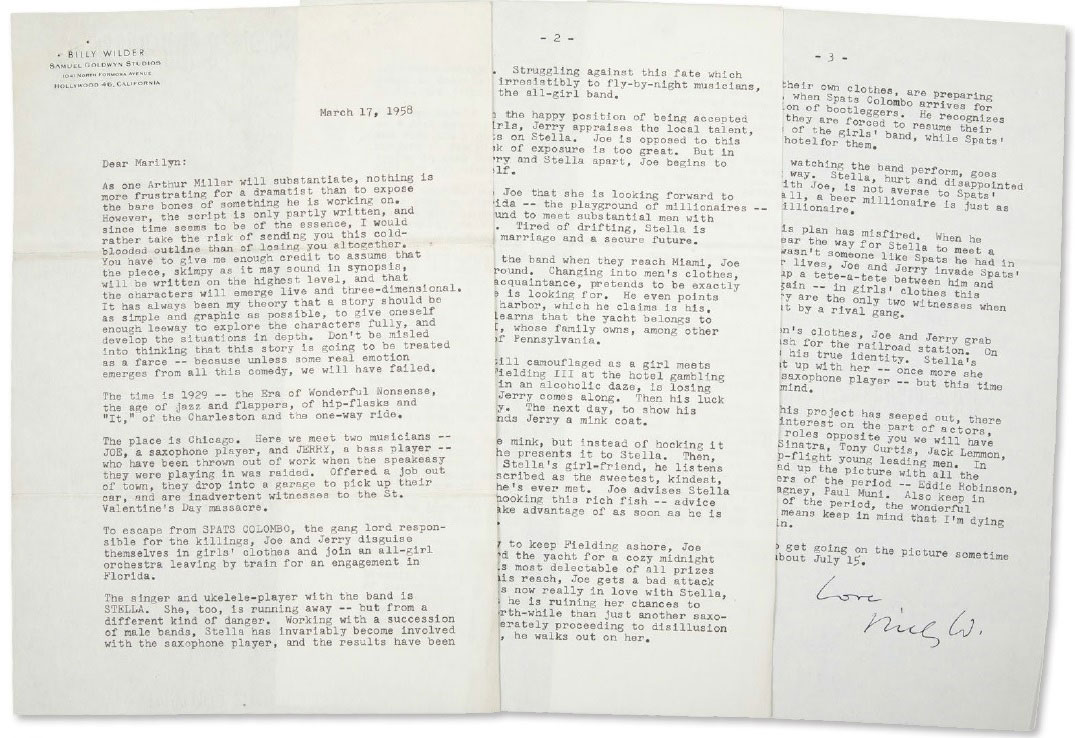 BILLY WILDER
SAMUEL GOLDWYN STUDIOS
1041 NORTH FORMOSA AVENUE
HOLLYWOOD 46, CALIFORNIA
March 17, 1958
Dear Marilyn:
As one Arthur Miller will substantiate, nothing is
more frustrating for a dramatist than to expose
the bare bones of something he is working on.
However, the script is only partly written, and
since time seems to be of the essence, I would
rather take the risk of sending you this cold-
blooded outline than of losing you altogether.
You have to give me enough credit to assume that
the piece, skimpy as it may sound in synopsis,
will be written on the highest level, and that
the characters will emerge live and three-dimensional.
It has always been my theory that a story should be
as simple and graphic as possible, to give oneself
enough leeway to explore the characters fully, and
develop the situations in depth. Don't be misled
into thinking that this story is going to be treated
as a farce -- because unless some real emotion
emerges from all this comedy, we will have failed.
The time is 1929 -- the Era of Wonderful Nonsense,
the age of jazz and flappers, of hip-flasks and
"It," of the Charleston and the one-way ride.
The place is Chicago. Here we meet two musicians --
JOE, a saxophone player, and JERRY, a bass player --
who have been thrown out of work when the speakeasy
they were playing in was raided. Offered a job out
of town, they drop into a garage to pick up their
car, and are inadvertent witnesses to the St.
Valentine's Day massacre.
To escape from SPATS COLOMBO, the gang lord respon-
sible for the killings, Joe and Jerry disguise
themselves in girls' clothes and join an all-girl
orchestra leaving by train for an engagement in
Florida.
The singer and ukelele-player with the band is
STELLA. She, too, is running away -- but from a
different kind of danger. Working with a succession
of male bands, Stella has invariably become involved
with the saxophone player, and the results have been
- 2 -
. Struggling against this fate which
irresistibly to fly-by-night musicians,
the all-girl band.
the happy position of being accepted
irls, Jerry appraises the local talent,
s on Stella. Joe is opposed to this
k of exposure is too great. But in
rry and Stella apart, Joe begins to
lf.
Joe that she is looking forward to
ida -- the playground of millionaires --
und to meet substantial men with
. Tired of drifting, Stella is
marriage and a secure future.
the band when they reach Miami, Joe
round. Changing into men's clothes,
acquaintance, pretends to be exactly
e is looking for. He even points
harbor, which he claims is his.
learns that the yacht belongs to
, whose family owns, among other
of Pennsylvania.
ill camouflaged as a girl meets
Fielding III at the hotel gambling
in an alcoholic daze, is losing
Jerry comes along. Then his luck
y. The next day, to show his
nds Jerry a mink coat.
e mink, but instead of hocking it
he presents it to Stella. Then,
Stella's girl-friend, he listens
scribed as the sweetest, kindest,
he's ever met. Joe advises Stella
hooking this rich fish -- advice
ake advantage of as soon as he is
.
y to keep Fielding ashore, Joe
rd the yacht for a cozy midnight
s most delectable of all prizes
his reach, Joe gets a bad attack
s now really in love with Stella,
he is ruining her chances to
rth-while than just another saxo-
erately proceeding to disillusion
, he walks out on her.
- 3 -
their own clothes, are preparing
, when Spats Colombo arrives for
ion of bootleggers. He recognizes
they are forced to resume their
of the girls' band, while Spats'
hotel for them.
watching the band perform, goes
way. Stella, hurt and disappointed
ith Joe, is not averse to Spats'
all, a beer millionaire is just as
illionaire.
is plan has misfired. When he
ear the way for Stella to meet a
wasn't someone like Spats he had in
r lives, Joe and Jerry invade Spats'
up a tete-a-tete between him and
gain -- in girls' clothes this
ry are the only two witnesses when
t by a rival gang.
n's clothes, Joe and Jerry grab
sh for the railroad station. On
his true identity. Stella's
t up with her -- once more she
saxophone player -- but this time
mind.
his project has seeped out, there
interest on the part of actors,
roles opposite you we will have
Sinatra, Tony Curtis, Jack Lemmon,
p-flight young leading men. In
ad up the picture with all the
ers of the period -- Eddie Robinson,
agney, Paul Muni. Also keep in
of the period, the wonderful
means keep in mind that I'm dying
n.
o get going on the picture sometime
about July 15.
Love
Billy W.